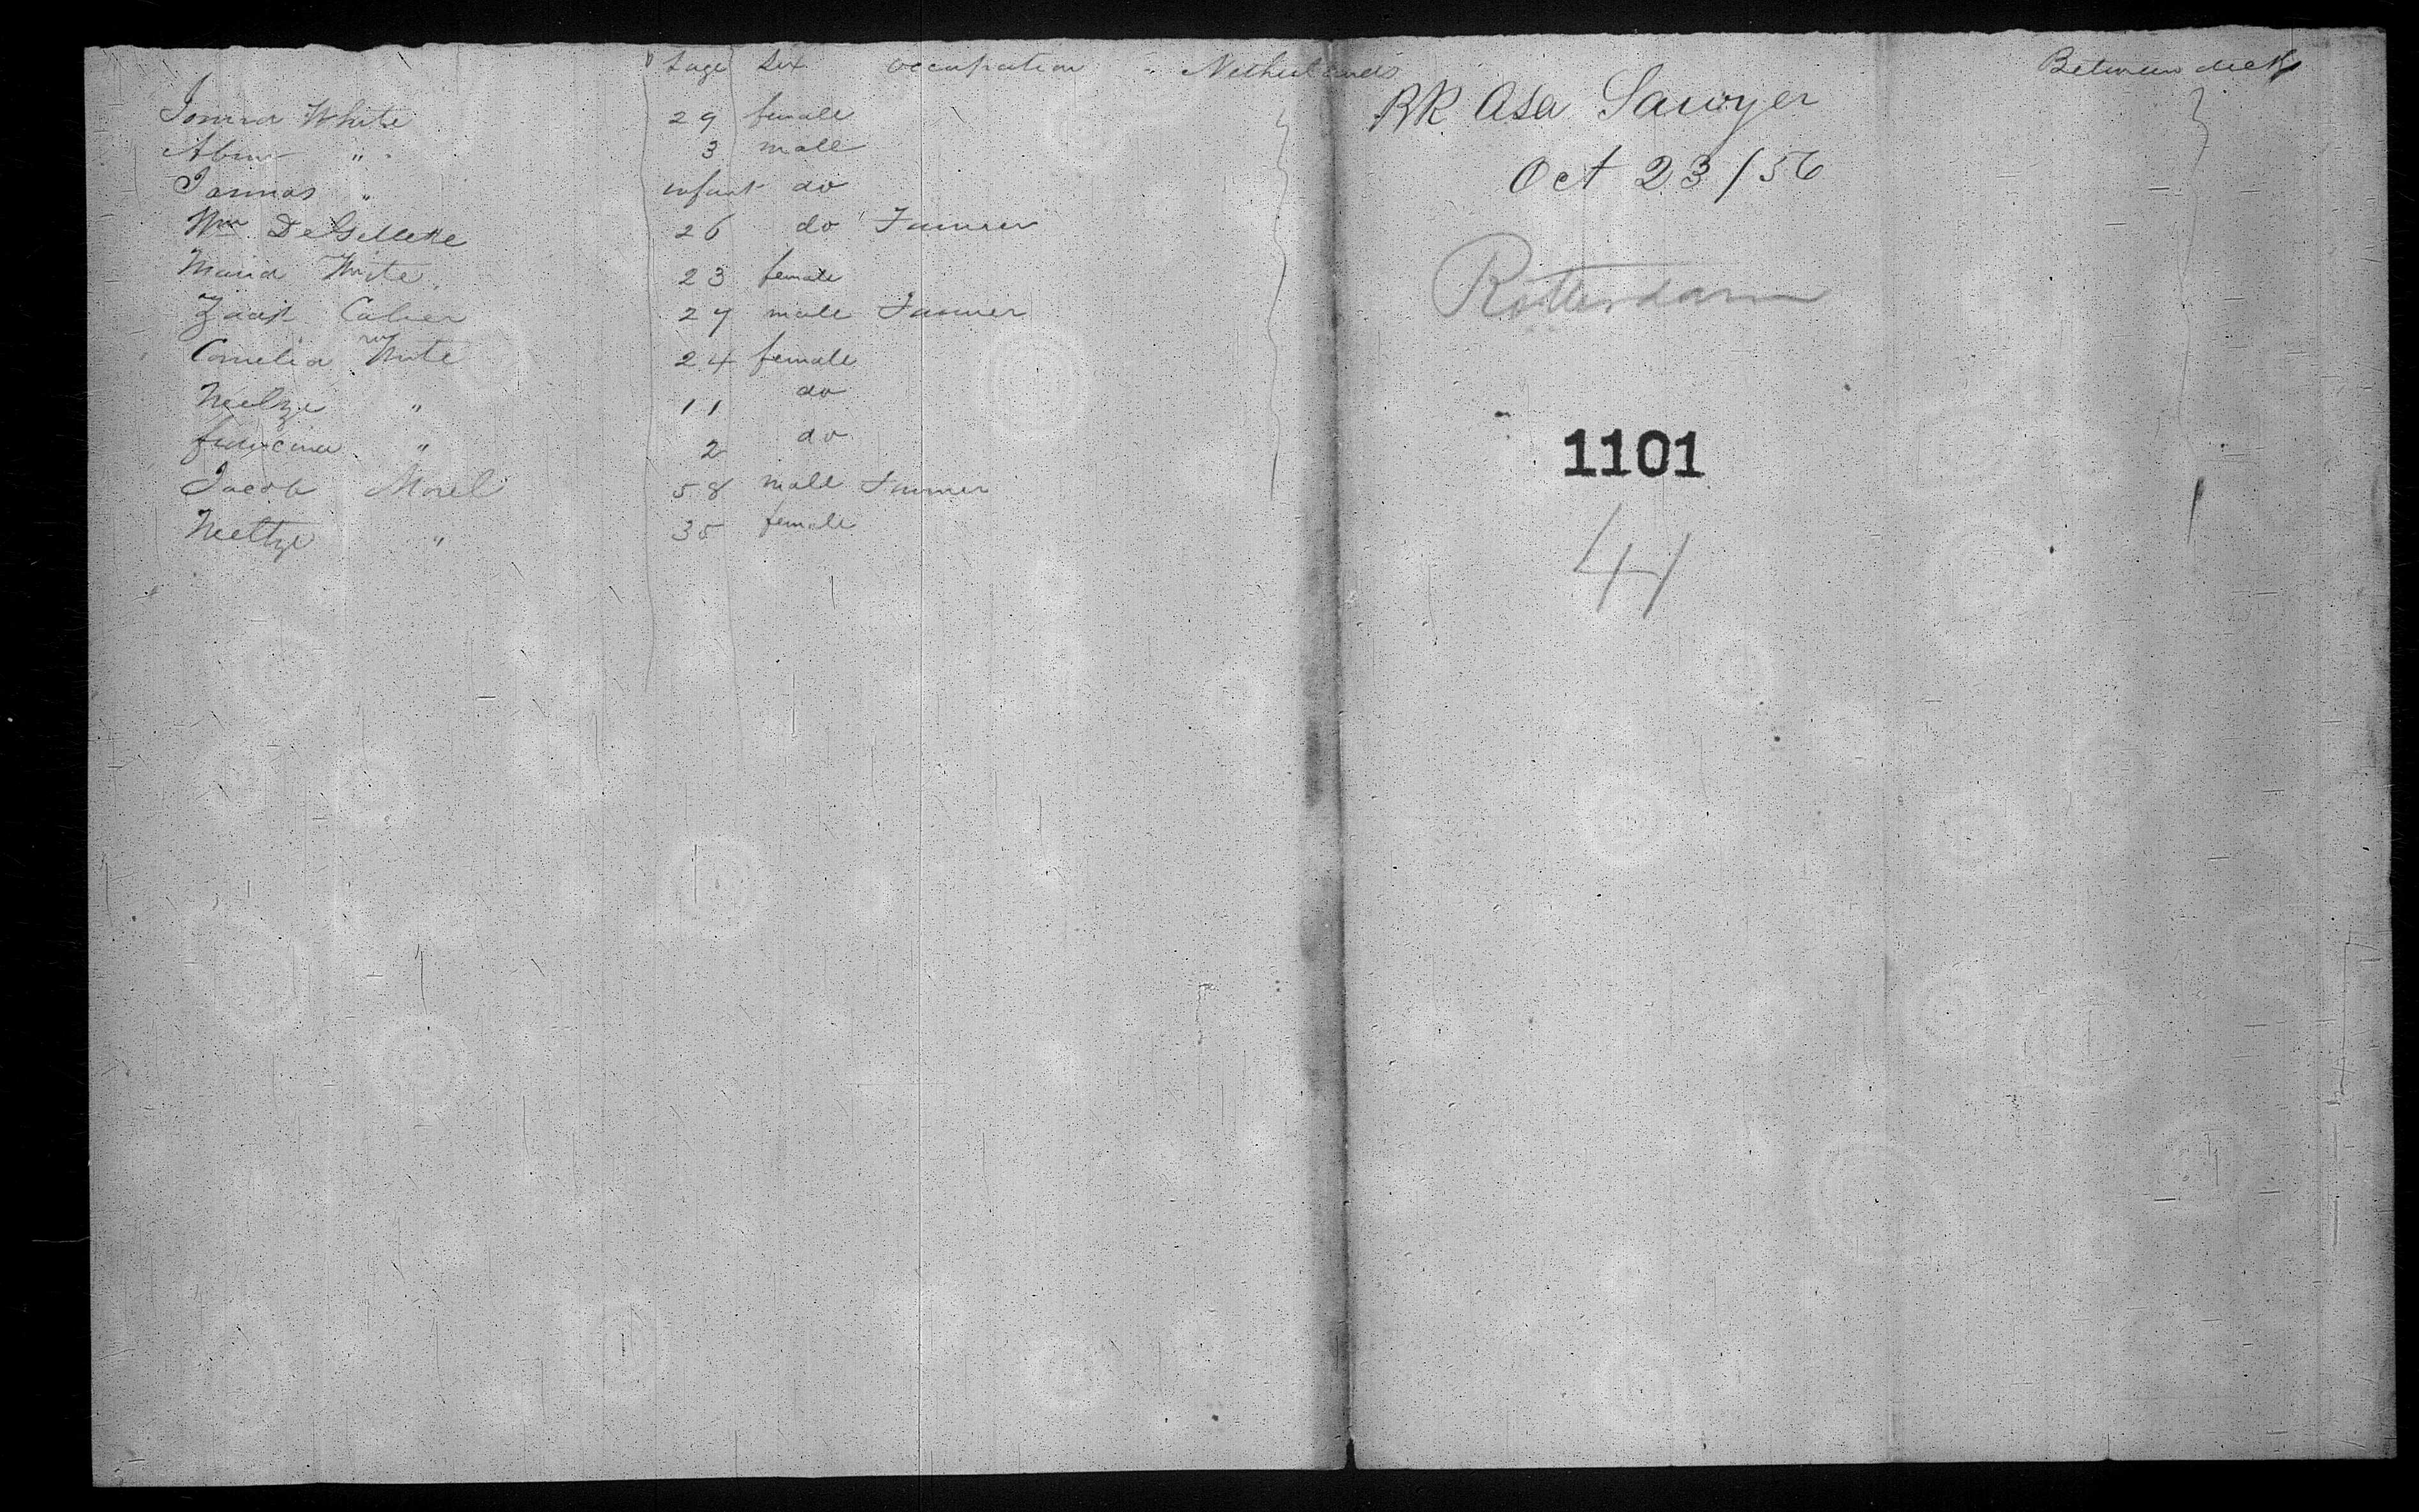 age sex occupation Netherlands
White 29 female
" 3 male
" infant do
Wm DeGelleke 26 do Farmer
Maria Wite 23 female
Izaak 27 male Farmer
Cornelia Wite 24 female
Neeltze " 11 do
" 2 do
Jacob Morel 58 male Farmer
Neeltze " 35 female
BK Asa Sawyer
Oct 23/56
Rotterdam
1101
41
Between decks